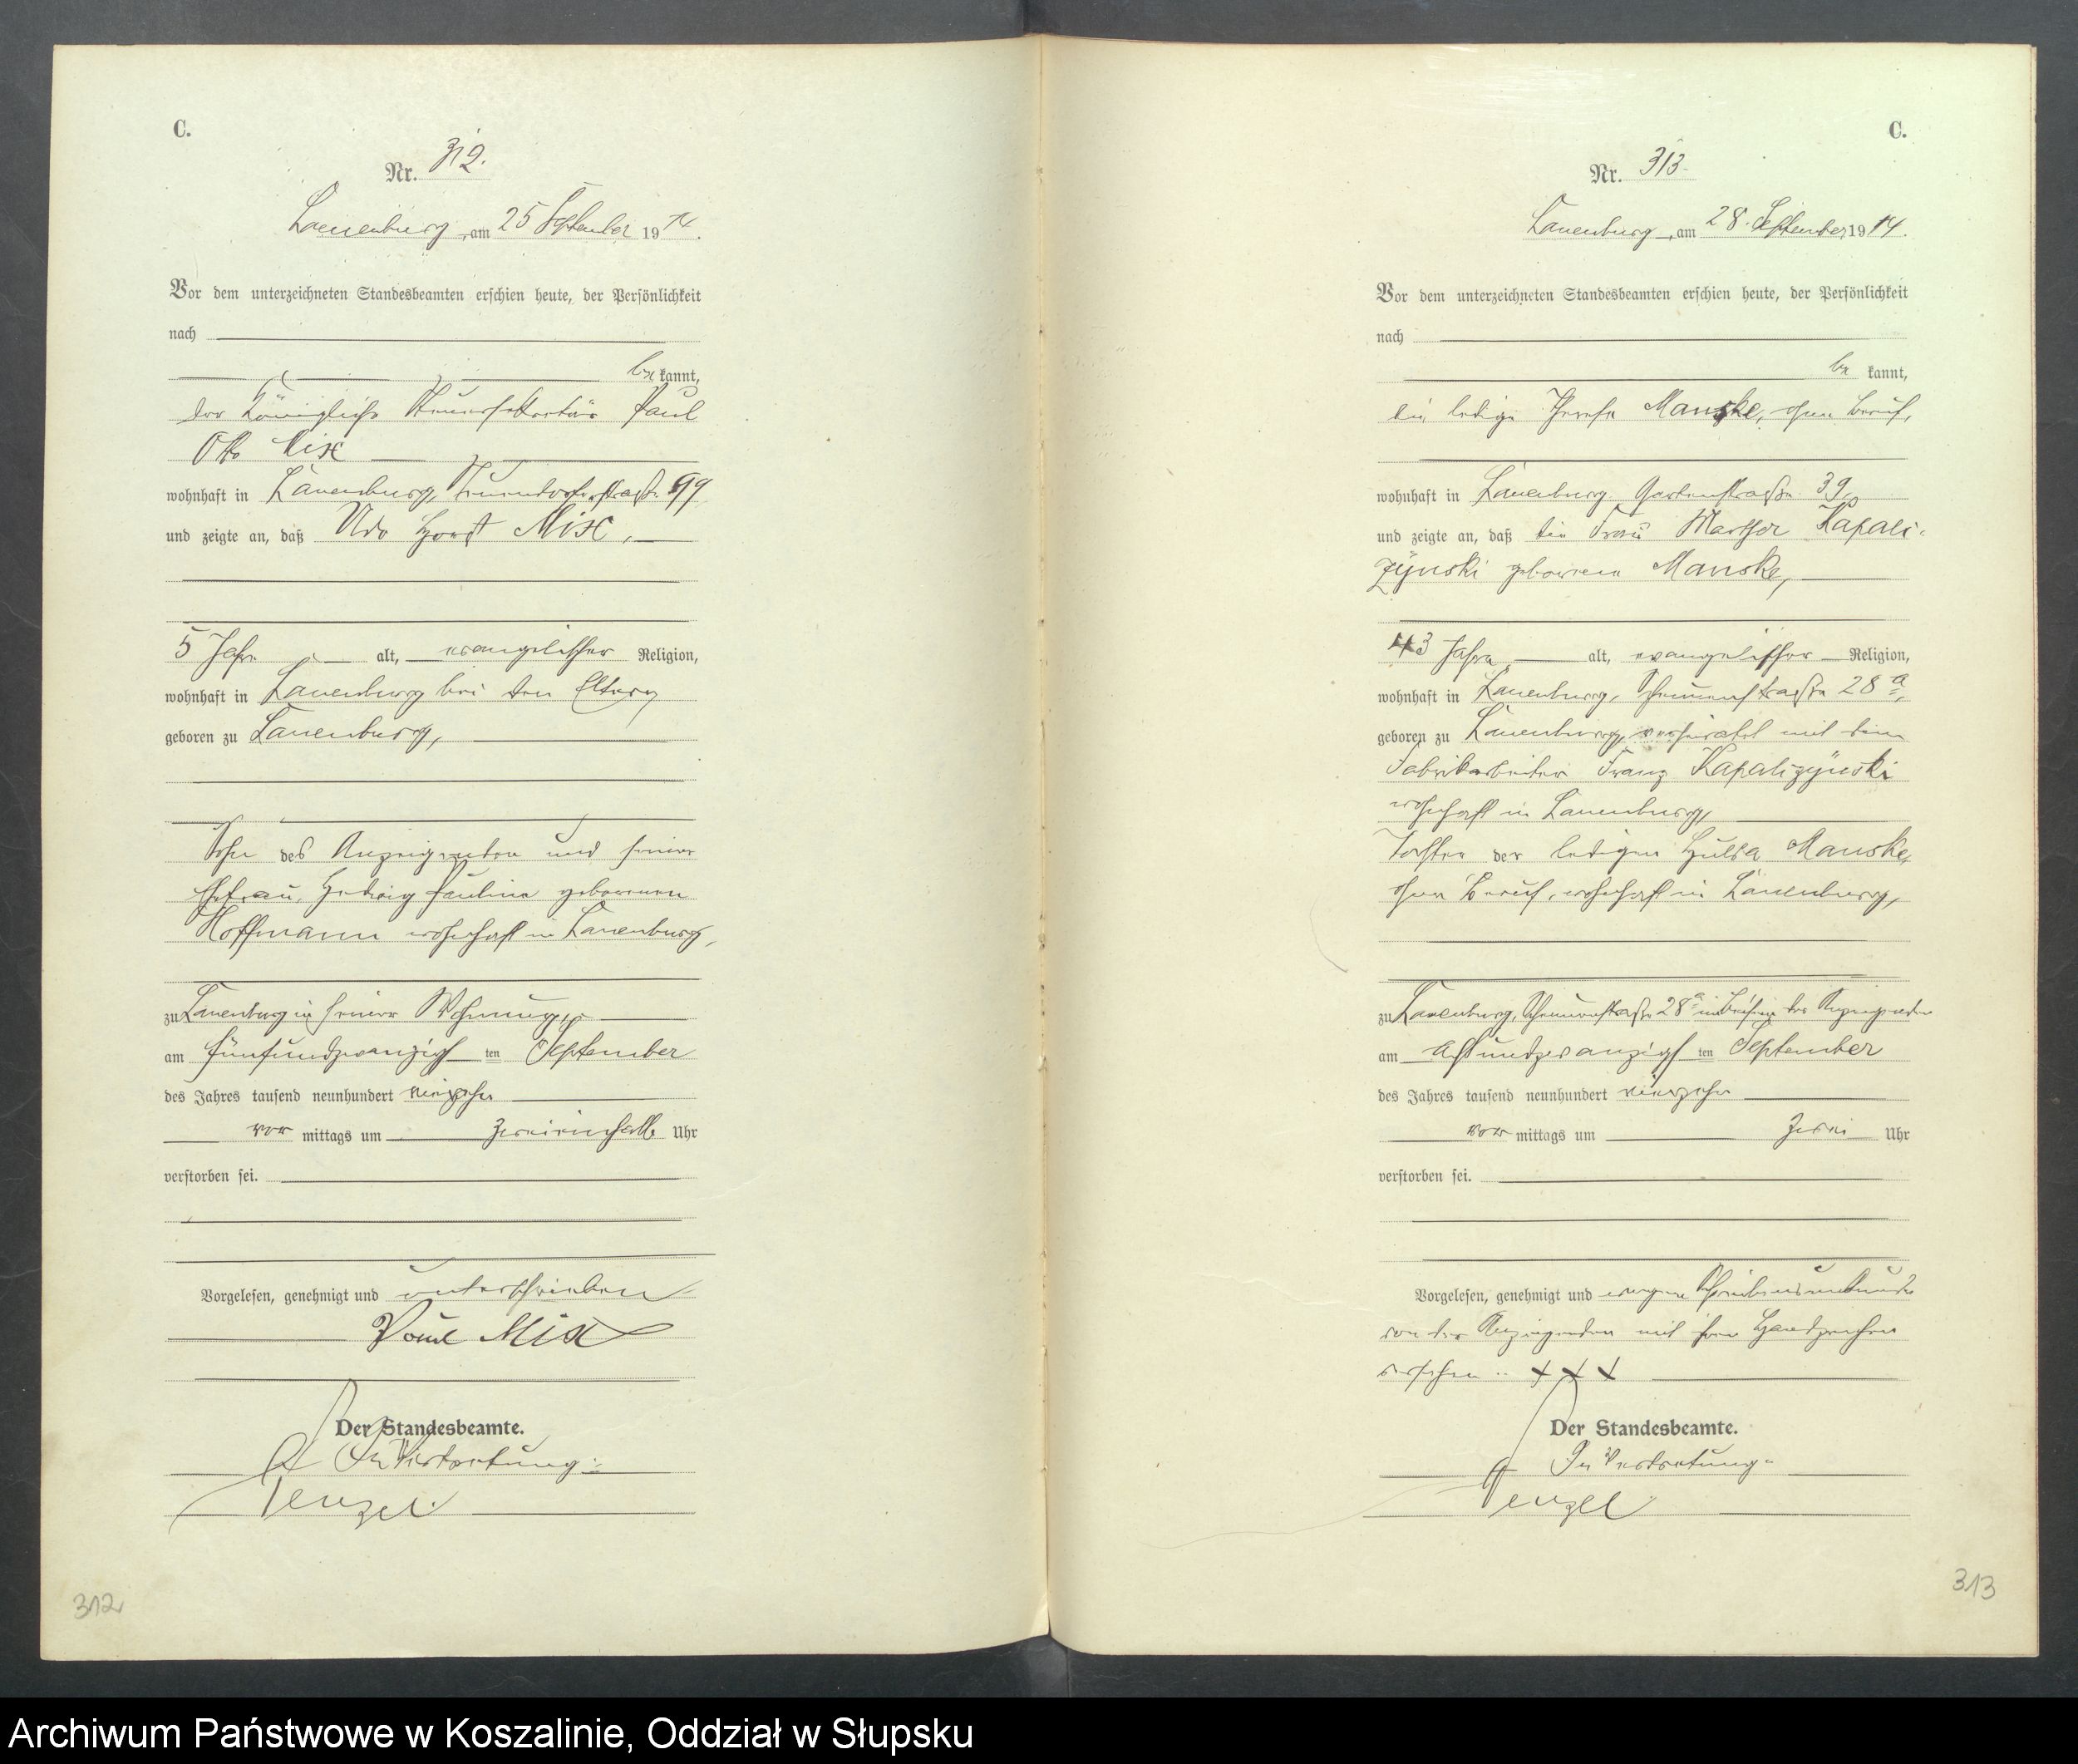 C.
Nr. 312.
Lauenburg, am 25 September 1914.
Vor dem unterzeichneten Standesbeamten erschien heute, der Persönlichkeit
nach
be kannt,
der Königliche Steuersekretär Paul
Otto Mix
wohnhaft in Lauenburg, 99
und zeigte an, daß Udo Horst Mix,
5 Jahre alt, evangelischer Religion,
wohnhaft in Lauenburg bei den Eltern
geboren zu Lauenburg,
Sohn des Anzeigenden und seiner
Ehefrau, Hedwig Pauline geborenen
Hoffmann wohnhaft in Lauenburg,
zu Lauenburg in seiner Wohnung,
am fünfundzwanzigsten September
des Jahres tausend neunhundert vierzehn
vor mittags um zweieinhalb Uhr
verstorben sei.
Vorgelesen, genehmigt und unterschrieben
Paul Mix
Der Standesbeamte.
In Vertretung:
Wenzel.
312
C.
Nr. 313.
Lauenburg, am 28. September 1914.
Vor dem unterzeichneten Standesbeamten erschien heute, der Persönlichkeit
nach
be kannt,
die ledige Therese Manske, ohne Beruf,
wohnhaft in Lauenburg Gartenstraße 39,
und zeigte an, daß die Frau Martha Kapali-
zynski geborene Manske,
43 Jahre alt, evangelischer Religion,
wohnhaft in Lauenburg, Scheunenstraße 28 a,
geboren zu Lauenburg, verheiratet mit dem
Fabrikarbeiter Franz Kapalizynski
wohnhaft in Lauenburg,
Tochter der ledigen Hulda Manske,
ohne Beruf, wohnhaft in Lauenburg,
zu Lauenburg, Scheunenstraße 28 a in Beisein der Anzeigenden
am achtundzwanzigsten September
des Jahres tausend neunhundert vierzehn
vor mittags um zwei Uhr
verstorben sei.
Vorgelesen, genehmigt und wegen Schreibensunkunde
von der Anzeigenden mit ihrem Handzeichen
versehen. + + +
Der Standesbeamte.
In Vertretung:
Wenzel
313
Archiwum Państwowe w Koszalinie, Oddział w Słupsku